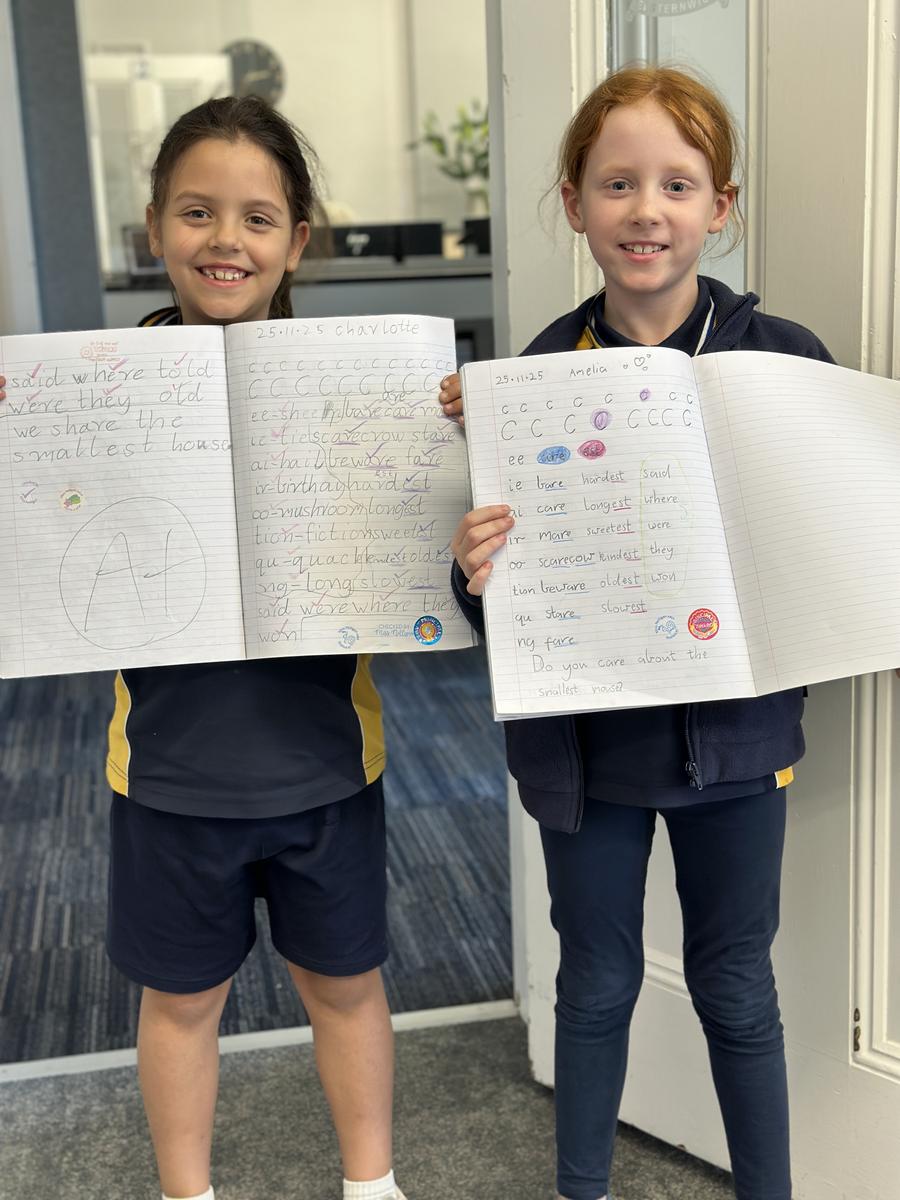 said where told
were they old
we share the
smallest house
A+
25.11.25 Charlotte
c c c c c c c c c c c c
C C C C C C C C C
are
ee-shee bare care
ie-tie scarecrow stare
ai-hail beware fare
est
ir-birthday hardest
oo-mushroom longest
tion-fiction sweetest
qu-quack kindest oldest
ng-long slowest
said were where they
won
CHECKED BY
25.11.25 Amelia
c c c c c c c c
C C C C C C C C
ee are est
ie bare hardest said
ai care longest where
ir mare sweetest were
oo scarecow kindest they
tion beware oldest won
qu stare slowest
ng fare
Do you care about the
smallest mouse?